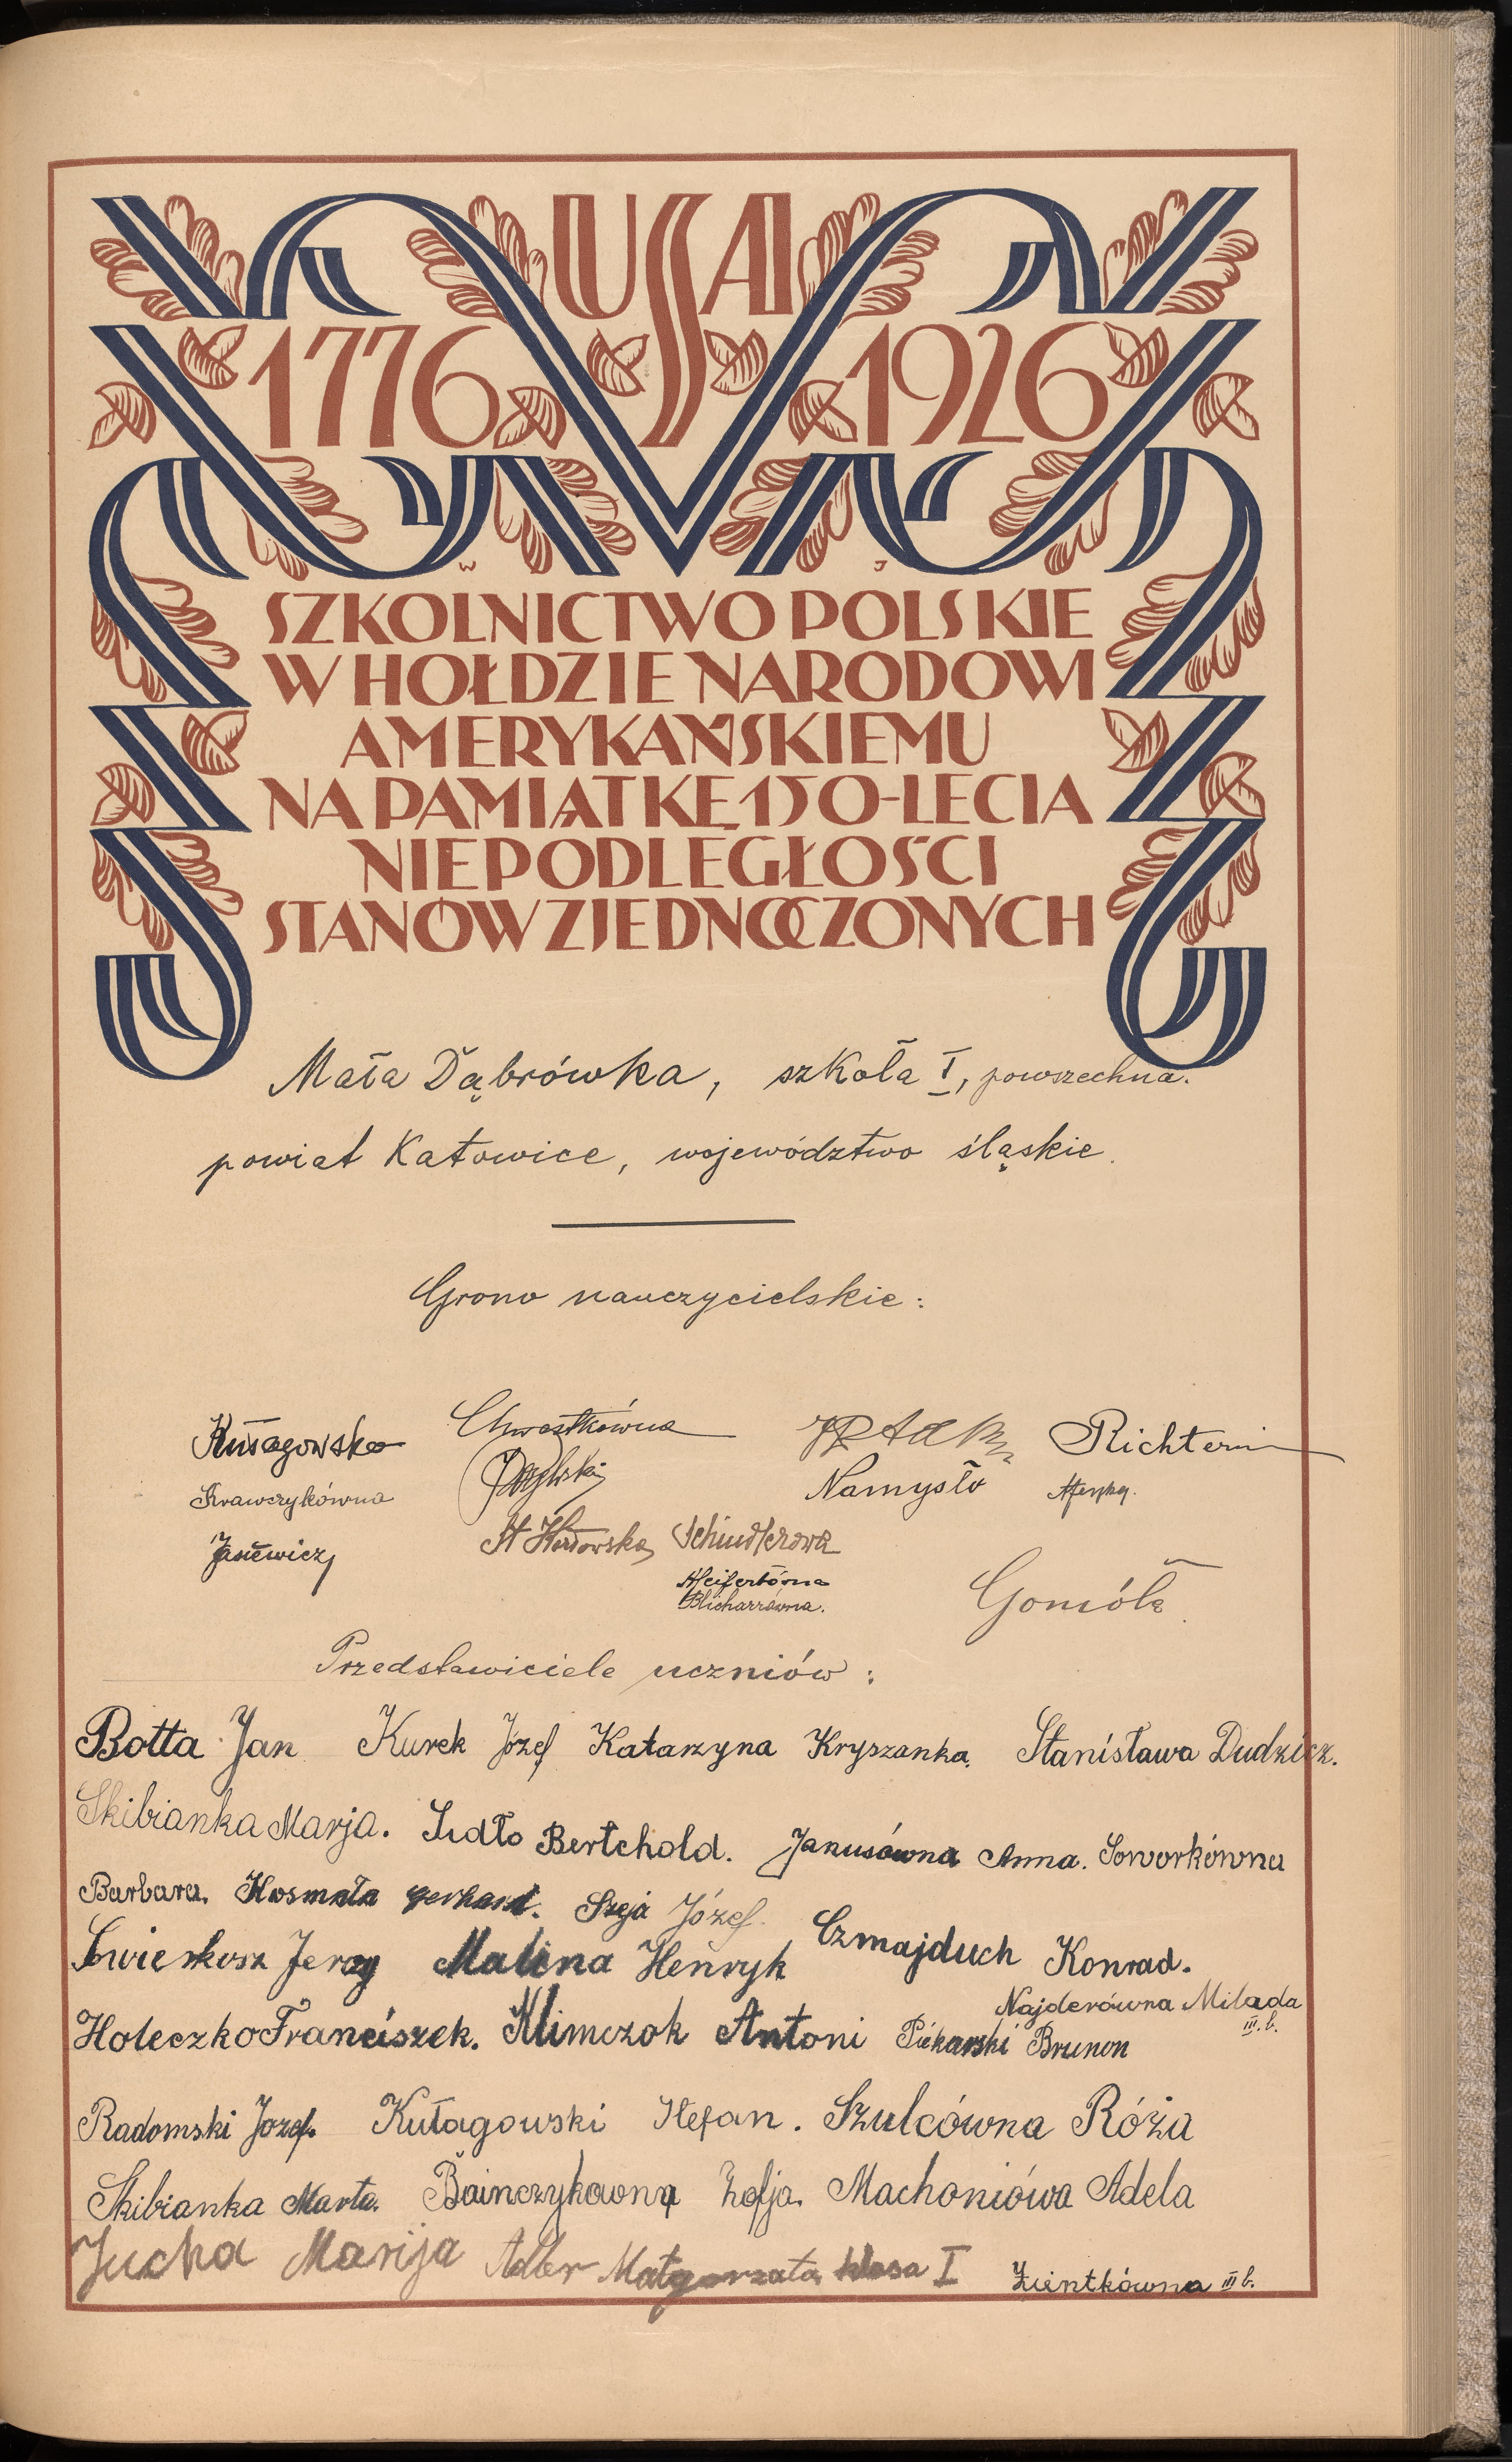 USA
1776 1926
W J
SZKOLNICTWO POLSKIE
W HOŁDZIE NARODOWI
AMERYKAŃSKIEMU
NA PAMIĄTKĘ 150-LECIA
NIEPODLEGŁOŚCI
STANÓW ZJEDNOCZONYCH
Mała Dąbrówka, szkoła I, powszechna.
powiat Katowice, województwo śląskie.
Grono nauczycielskie:
Chwastkówna Richter
Krawczykówna Namysło
Janiewicz Schindlerowa
Blicharzówna. Gomóła
Przedstawiciele uczniów:
Botta Jan Kurek Józef Katarzyna Kryszanka. Stanisława Dudzicz.
Skibianka Marja. Sudło Bertchold. Janusówna Anna. Soworkówna
Barbara. Kosmała Gerhard. Szeja Józef. Czmajduch Konrad.
Świerkosz Jerzy Malina Henryk
Najderówna Milada III. b.
Holeczko Franciszek. Klimczok Antoni Piekarski Brunon
Radomski Jozef. Kułagowski Stefan. Szulcówna Róża
Skibianka Marta. Bainczykowna Zofja. Machoniówa Adela
Jucha Marija Adler Małgorzata klasa I Zientkówna III b.